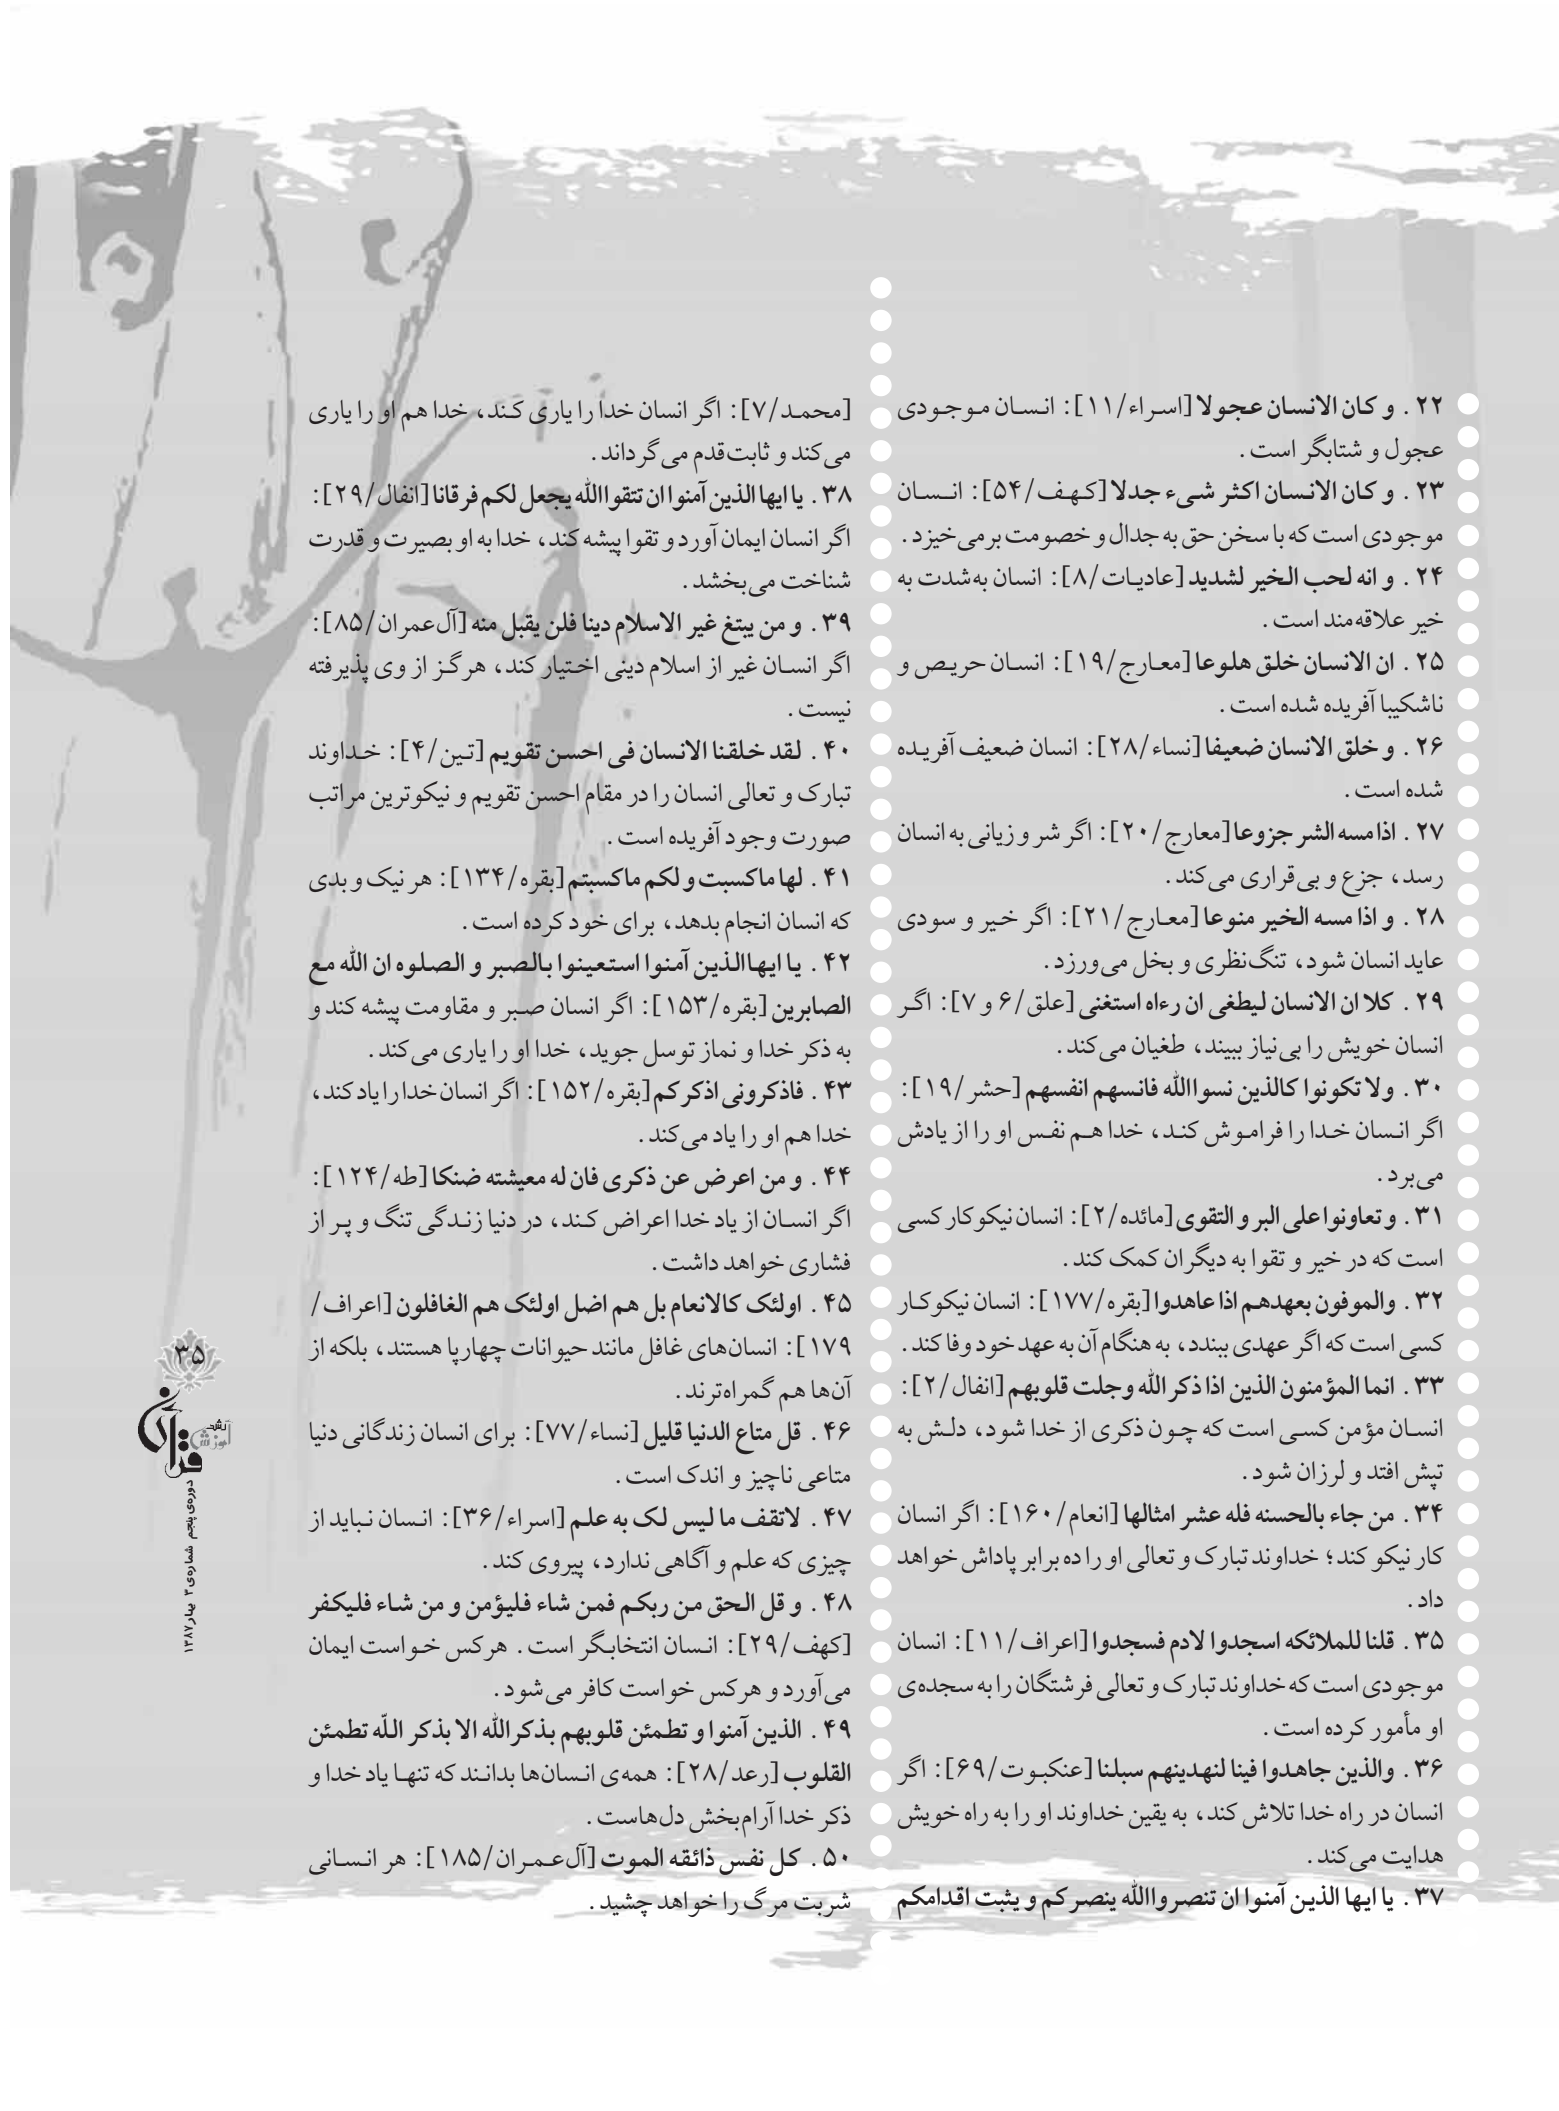 ۲۲. و کان الانسان عجولا [اسراء/۱۱]: انسان موجودی
عجول و شتابگر است.
۲۳. و کان الانسان اکثر شیء جدلا [کهف/۵۴]: انسان
موجودی است که با سخن حق به جدال و خصومت برمی‌خیزد.
۲۴. و انه لحب الخیر لشدید [عادیات/۸]: انسان به‌شدت به
خیر علاقه‌مند است.
۲۵. ان الانسان خلق هلوعا [معارج/۱۹]: انسان حریص و
ناشکیبا آفریده شده است.
۲۶. و خلق الانسان ضعیفا [نساء/۲۸]: انسان ضعیف آفریده
شده است.
۲۷. اذا مسه الشر جزوعا [معارج/۲۰]: اگر شر و زیانی به انسان
رسد، جزع و بی‌قراری می‌کند.
۲۸. و اذا مسه الخیر منوعا [معارج/۲۱]: اگر خیر و سودی
عاید انسان شود، تنگ‌نظری و بخل می‌ورزد.
۲۹. کلا ان الانسان لیطغی ان رءاه استغنی [علق/۶ و ۷]: اگر
انسان خویش را بی‌نیاز ببیند، طغیان می‌کند.
۳۰. ولا تکونوا کالذین نسوا الله فانسهم انفسهم [حشر/۱۹]:
اگر انسان خدا را فراموش کند، خدا هم نفس او را از یادش
می‌برد.
۳۱. و تعاونوا علی البر و التقوی [مائده/۲]: انسان نیکوکار کسی
است که در خیر و تقوا به دیگران کمک کند.
۳۲. والموفون بعهدهم اذا عاهدوا [بقره/۱۷۷]: انسان نیکوکار
کسی است که اگر عهدی ببندد، به هنگام آن به عهد خود وفا کند.
۳۳. انما المؤمنون الذین اذا ذکر الله وجلت قلوبهم [انفال/۲]:
انسان مؤمن کسی است که چون ذکری از خدا شود، دلش به
تپش افتد و لرزان شود.
۳۴. من جاء بالحسنه فله عشر امثالها [انعام/۱۶۰]: اگر انسان
کار نیکو کند؛ خداوند تبارک و تعالی او را ده برابر پاداش خواهد
داد.
۳۵. قلنا للملائکه اسجدوا لادم فسجدوا [اعراف/۱۱]: انسان
موجودی است که خداوند تبارک و تعالی فرشتگان را به سجده‌ی
او مأمور کرده است.
۳۶. والذین جاهدوا فینا لنهدینهم سبلنا [عنکبوت/۶۹]: اگر
انسان در راه خدا تلاش کند، به یقین خداوند او را به راه خویش
هدایت می‌کند.
۳۷. یا ایها الذین آمنوا ان تنصروا الله ینصرکم و یثبت اقدامکم
[محمد/۷]: اگر انسان خدا را یاری کند، خدا هم او را یاری
می‌کند و ثابت‌قدم می‌گرداند.
۳۸. یا ایها الذین آمنوا ان تتقوا الله یجعل لکم فرقانا [انفال/۲۹]:
اگر انسان ایمان آورد و تقوا پیشه کند، خدا به او بصیرت و قدرت
شناخت می‌بخشد.
۳۹. و من یبتغ غیر الاسلام دینا فلن یقبل منه [آل‌عمران/۸۵]:
اگر انسان غیر از اسلام دینی اختیار کند، هرگز از وی پذیرفته
نیست.
۴۰. لقد خلقنا الانسان فی احسن تقویم [تین/۴]: خداوند
تبارک و تعالی انسان را در مقام احسن تقویم و نیکوترین مراتب
صورت وجود آفریده است.
۴۱. لها ماکسبت و لکم ماکسبتم [بقره/۱۳۴]: هر نیک و بدی
که انسان انجام بدهد، برای خود کرده است.
۴۲. یا ایها الذین آمنوا استعینوا بالصبر و الصلوه ان الله مع
الصابرین [بقره/۱۵۳]: اگر انسان صبر و مقاومت پیشه کند و
به ذکر خدا و نماز توسل جوید، خدا او را یاری می‌کند.
۴۳. فاذکرونی اذکرکم [بقره/۱۵۲]: اگر انسان خدا را یاد کند،
خدا هم او را یاد می‌کند.
۴۴. و من اعرض عن ذکری فان له معیشته ضنکا [طه/۱۲۴]:
اگر انسان از یاد خدا اعراض کند، در دنیا زندگی تنگ و پر از
فشاری خواهد داشت.
۴۵. اولئک کالانعام بل هم اضل اولئک هم الغافلون [اعراف/
۱۷۹]: انسان‌های غافل مانند حیوانات چهارپا هستند، بلکه از
آن‌ها هم گمراه‌ترند.
۴۶. قل متاع الدنیا قلیل [نساء/۷۷]: برای انسان زندگانی دنیا
متاعی ناچیز و اندک است.
۴۷. لاتقف ما لیس لک به علم [اسراء/۳۶]: انسان نباید از
چیزی که علم و آگاهی ندارد، پیروی کند.
۴۸. و قل الحق من ربکم فمن شاء فلیؤمن و من شاء فلیکفر
[کهف/۲۹]: انسان انتخابگر است. هرکس خواست ایمان
می‌آورد و هرکس خواست کافر می‌شود.
۴۹. الذین آمنوا و تطمئن قلوبهم بذکر الله الا بذکر الله تطمئن
القلوب [رعد/۲۸]: همه‌ی انسان‌ها بدانند که تنها یاد خدا و
ذکر خدا آرام‌بخش دل‌هاست.
۵۰. کل نفس ذائقه الموت [آل‌عمران/۱۸۵]: هر انسانی
شربت مرگ را خواهد چشید.
۳۵
رشد
آموزش
قرآن
دوره‌ی پنجم شماره‌ی ۳ بهار ۱۳۸۷